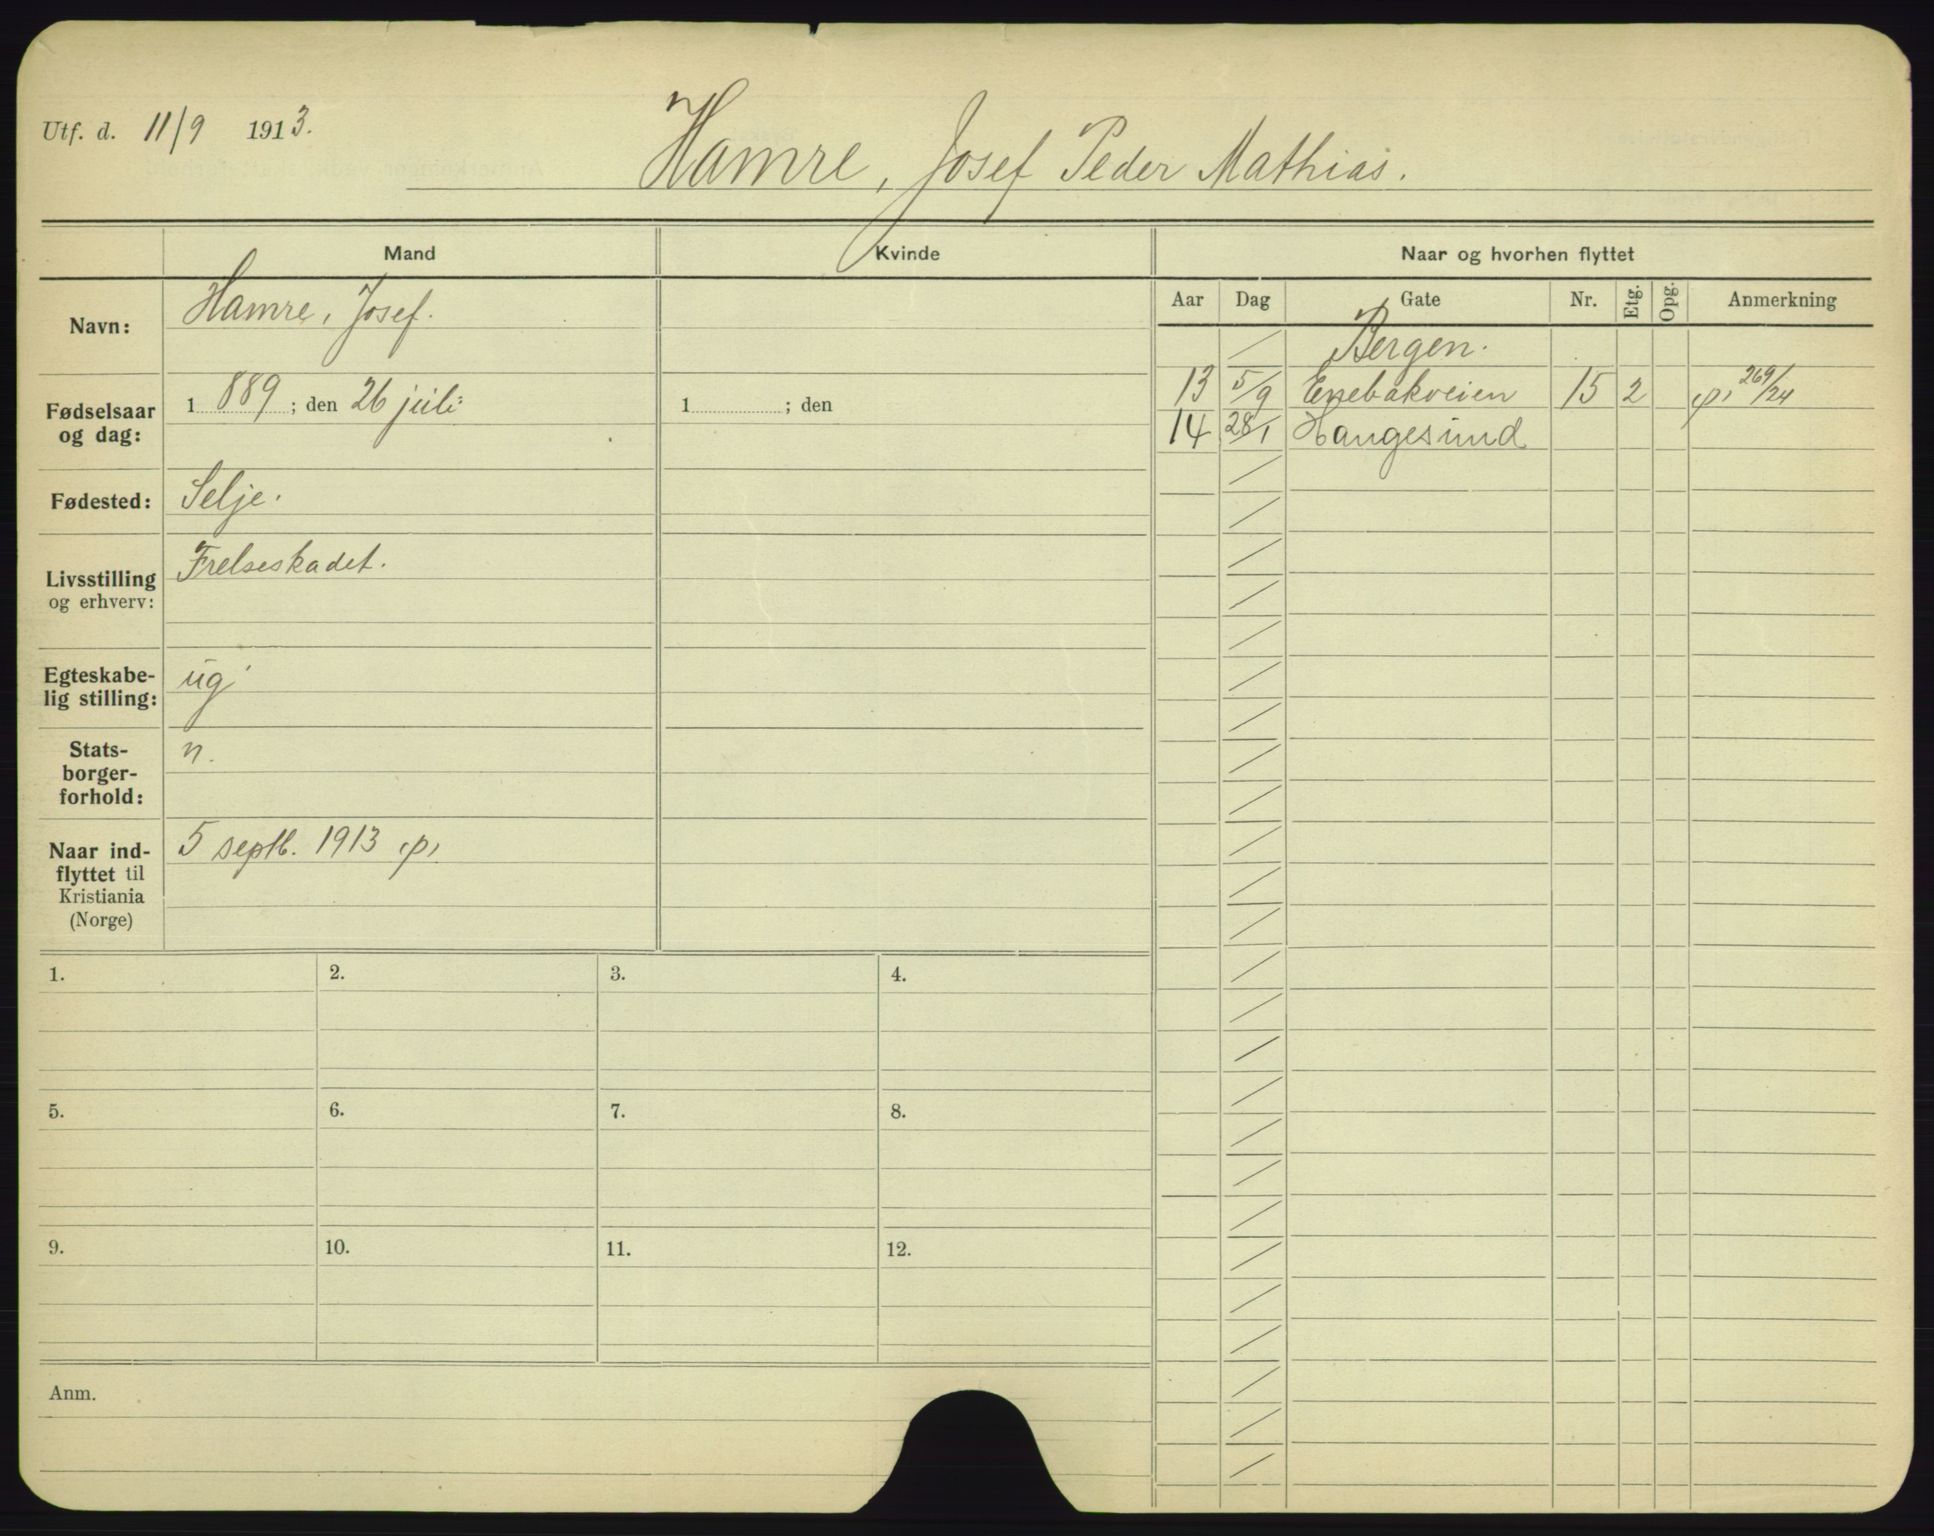 Utf. d. 11/9 1913.
Hamre, Josef Peder Mathias.
Mand
Kvinde
Naar og hvorhen flyttet
Navn:
Hamre, Josef.
Fødselsaar og dag:
1889; den 26 juli
1 ; den
Fødested:
Selje.
Livsstilling og erhverv:
Frelseskadet.
Egteskabe-
lig stilling:
ug
Stats-
borger-
forhold:
n.
Naar ind-
flyttet til
Kristiania
(Norge)
5 septb. 1913 p,
Aar Dag Gate Nr. Etg. Opg. Anmerkning
Bergen.
13 5/9 Enebakveien 15 2 p, 269/24
14 28/1 Haugesund
1.
2.
3.
4.
5.
6.
7.
8.
9.
10.
11.
12.
Anm.